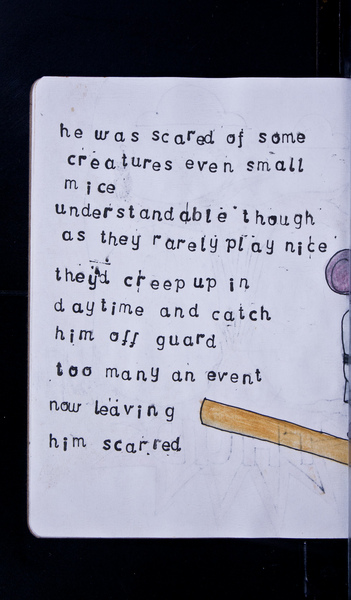 he was scared of some
creatures even small
mice
understandable though
as they rarely play nice
they'd creep up in
daytime and catch
him off guard
too many an event
now leaving
him scarred